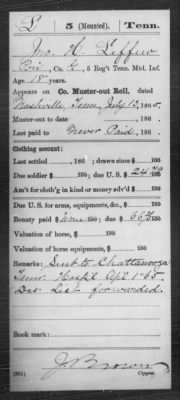 L | 5 (Mounted). | Tenn.
Wm. H. Leffew
Pri, Co. G, 5 Reg't Tenn. Mtd. Inf.
Age 18 years.
Appears on Co. Muster-out Roll, dated
Nashville, Tenn July 13, 1865.
Muster-out to date , 186 .
Last paid to Never Paid, 186 .
Clothing account:
Last settled , 186 ; drawn since $ 100
Due soldier $ 100; due U. S. $
Am't for cloth'g in kind or money adv'd $ 100
Due U. S. for arms, equipments, &c., $ 100
Bounty paid $ 100; due $ 100
Valuation of horse, $ 100
Valuation of horse equipments, $ 100
Remarks: Sent to Chattanooga
Tenn. Hospt. Apl 1-65
Des. List forwarded.
Book mark:
J. Brown
(861) Copyist.